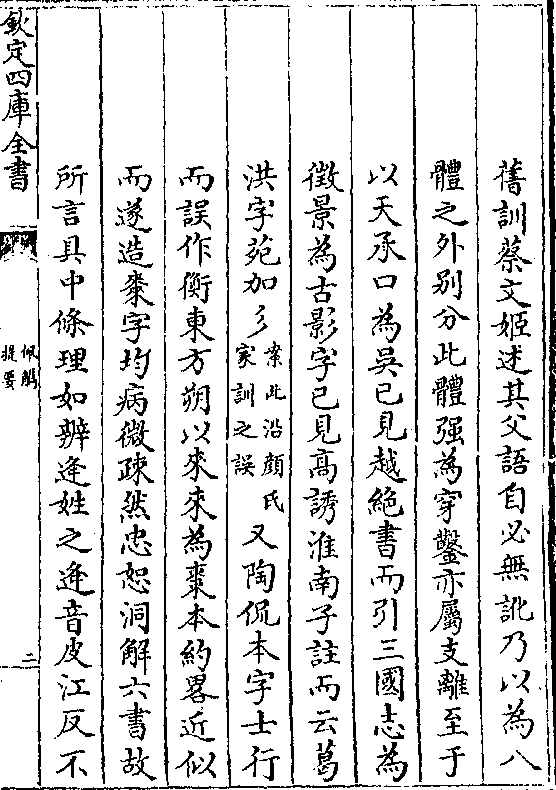 舊訓蔡文姬述其父語自必無訛乃以為八
體之外别分此體强為穿鑿亦屬支離至于
以天承口為吳已見越絶書而引三國志為
徴景為古影字已見高誘淮南子註而云葛
洪字苑加彡案此沿顔氏家訓之誤又陶侃本字士行
而誤作衡東方朔以來來為棗本約畧近似
而遂造𣗥字均病微疎然忠恕洞解六書故
所言具中條理如辨逄姓之逄音皮江反不
欽定四庫全書
佩觿
提要
二